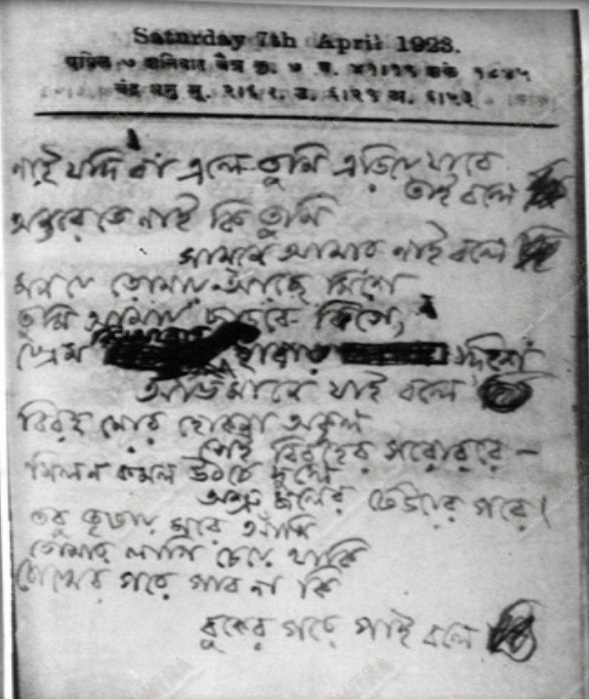 Saturday 7th April 1923.
নাই যদি বা এলে তুমি এড়িয়ে যাবে
তাই বলে
অন্তরেতে নাই কি তুমি
সামনে আমার নাই বলে
মন যে তোমায় আছে মিশে
তুমি আমায় ছাড়বে কিসে,
প্রেম হারায় দিশে
অভিমানে যাই বলে
বিরহ মোর হোকনা অকূল
সেই বিরহের সরোবরে –
মিলন কমল উঠচে দুলে
অশ্রু জলের ঢেউয়ের পরে।
তবু তৃষায় মরে আঁখি
তোমার লাগি চেয়ে থাকি
চোখের পরে পাব না কি
বুকের পরে পাই বলে